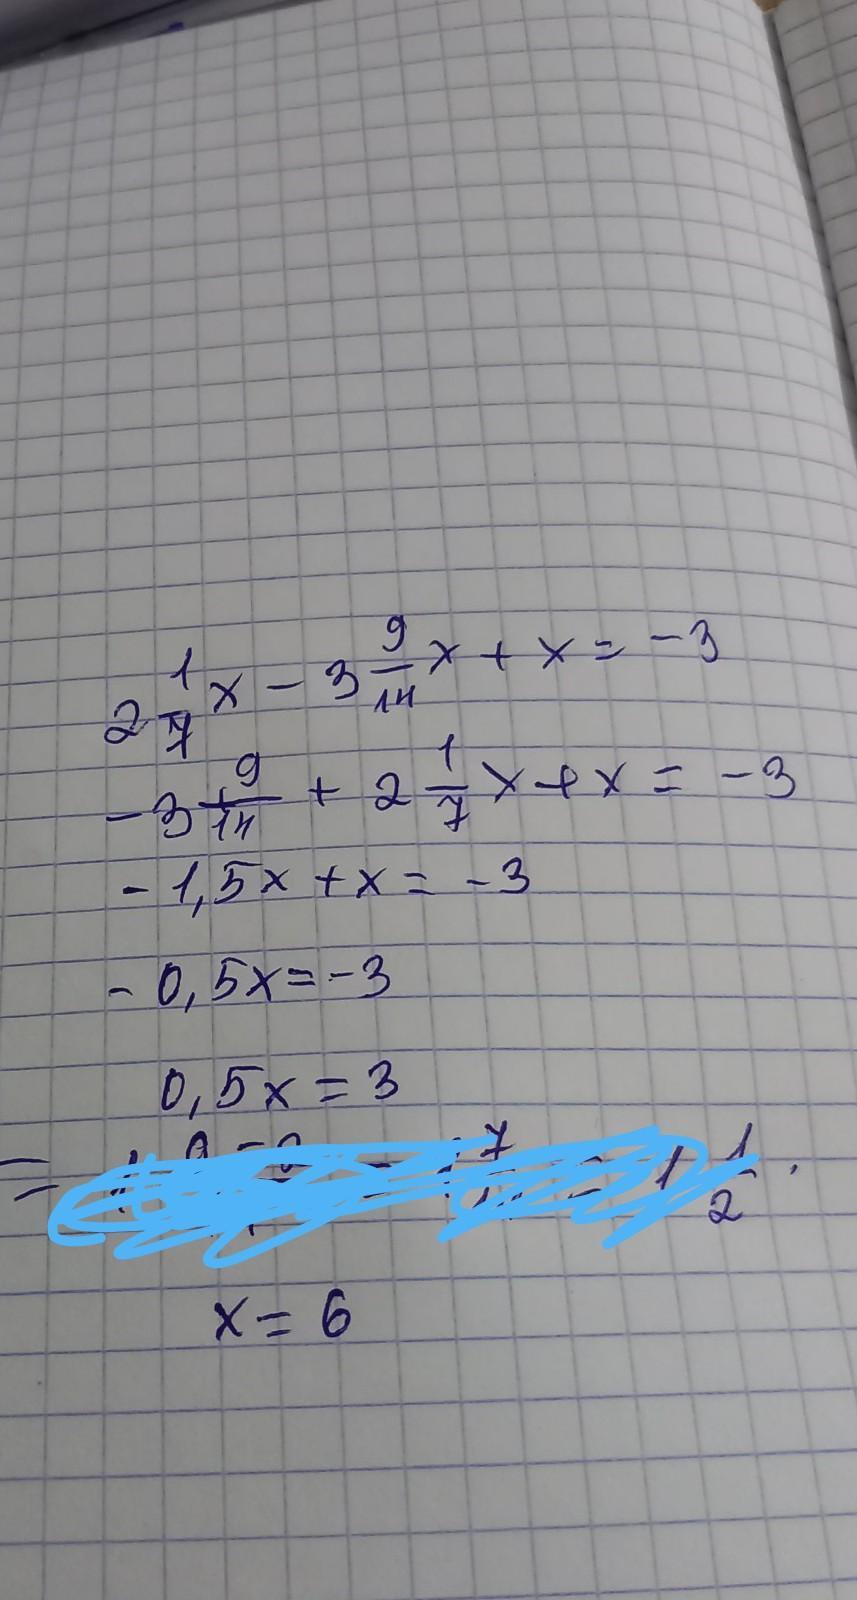 2 1/7 x - 3 9/14 x + x = -3
-3 9/14 + 2 1/7 x + x = -3
- 1,5x + x = -3
- 0,5x = -3
0,5x = 3
= 7 = 1 1/2 .
x = 6